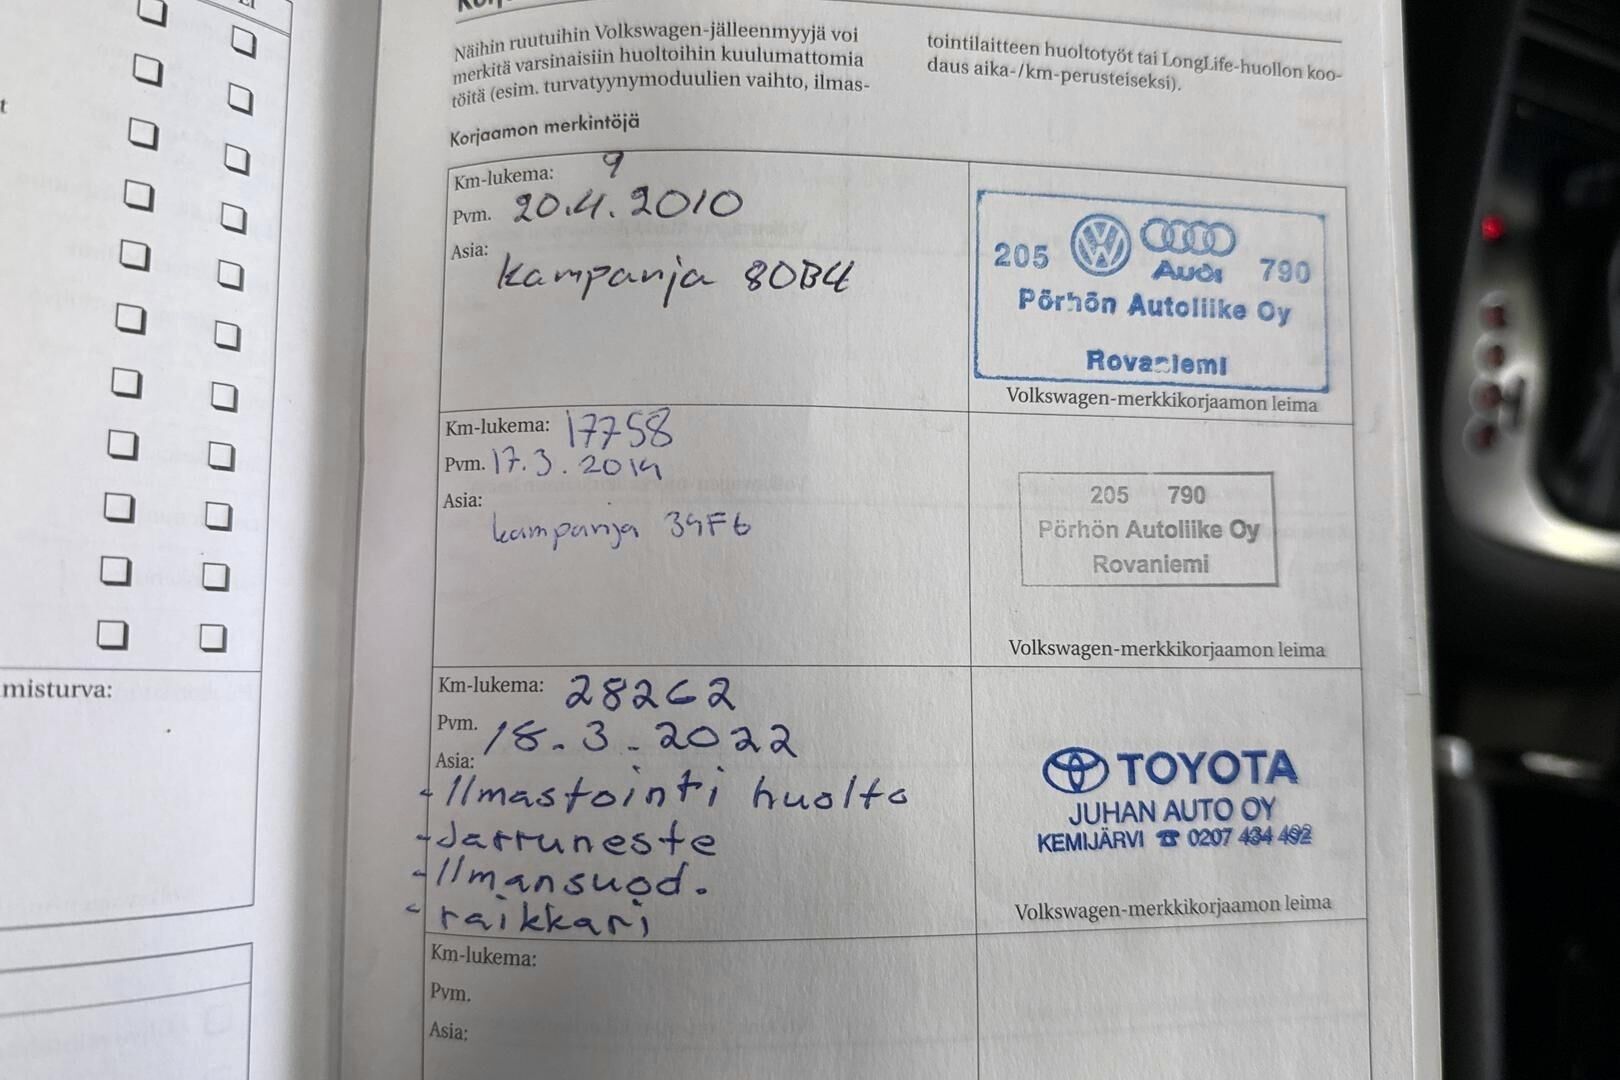 Näihin ruutuihin Volkswagen-jälleenmyyjä voi
merkitä varsinaisiin huoltoihin kuulumattomia
töitä (esim. turvatyynymoduulien vaihto, ilmas-
tointilaitteen huoltotyöt tai LongLife-huollon koo-
daus aika-/km-perusteiseksi).
Korjaamon merkintöjä
Km-lukema: 9
Pvm. 20.4.2010
Asia:
kampanja 80B4
205 Audi 790
Pörhön Autoliike Oy
Rovaniemi
Volkswagen-merkkikorjaamon leima
Km-lukema: 17758
Pvm. 17.3.2014
Asia:
kampanja 34F6
205 790
Pörhön Autoliike Oy
Rovaniemi
Volkswagen-merkkikorjaamon leima
Km-lukema: 28262
Pvm. 18.3.2022
Asia:
-Ilmastointi huolto
-Jarruneste
-Ilmansuod.
-raikkari
TOYOTA
JUHAN AUTO OY
KEMIJÄRVI ☎ 0207 434 492
Volkswagen-merkkikorjaamon leima
Km-lukema:
Pvm.
Asia:
misturva: